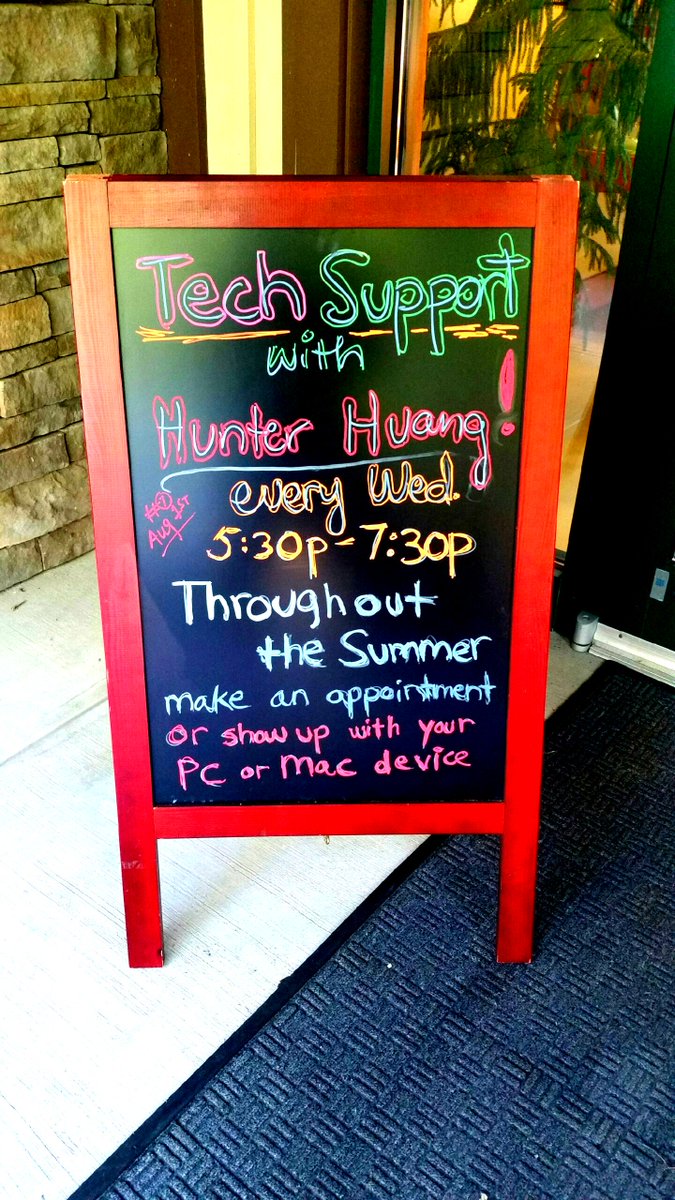 Tech Support
with
Hunter Huang!
every Wed.
Aug 1st
5:30p - 7:30p
Throughout
the Summer
make an appointment
or show up with your
PC or Mac device